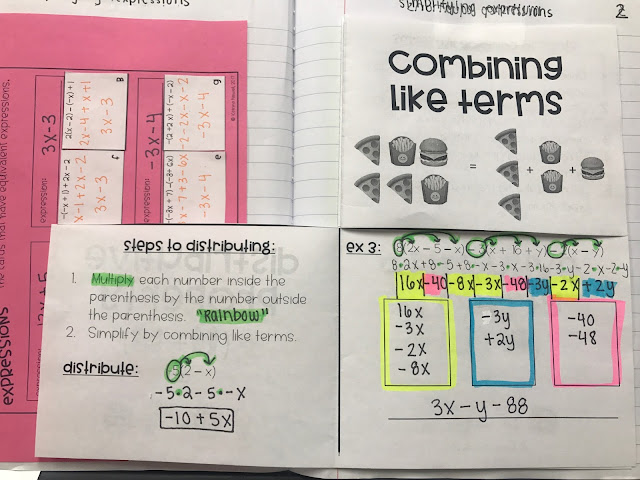 simplifying expressions
2
the cards that have equivalent expressions.
expressions
expression:
3x-3
B
2(x-2)-(-x)+1
2x-4+x+1
3x-3
f
-(-x+1)+2x-2
x-1+2x-2
3x-3
expression:
-3x-4
g
-(2+2x)+(-x-2)
-2-2x-x-2
-3x-4
e
combining
like terms
= + +
steps to distributing:
1. Multiply each number inside the
parenthesis by the number outside
the parenthesis. "Rainbow"
2. Simplify by combining like terms.
distribute:
-5(2-x)
-5•2-5•-x
-10+5x
ex 3: 8(2x-5-x)-3(x+16+y)-2(x-y)
8•2x+8•-5+8•-x-3•x-3•16-3•y-2•x-2•-y
16x-40-8x-3x-48-3y-2x+2y
16x
-3x
-2x
-8x
-3y
+2y
-40
-48
3x-y-88